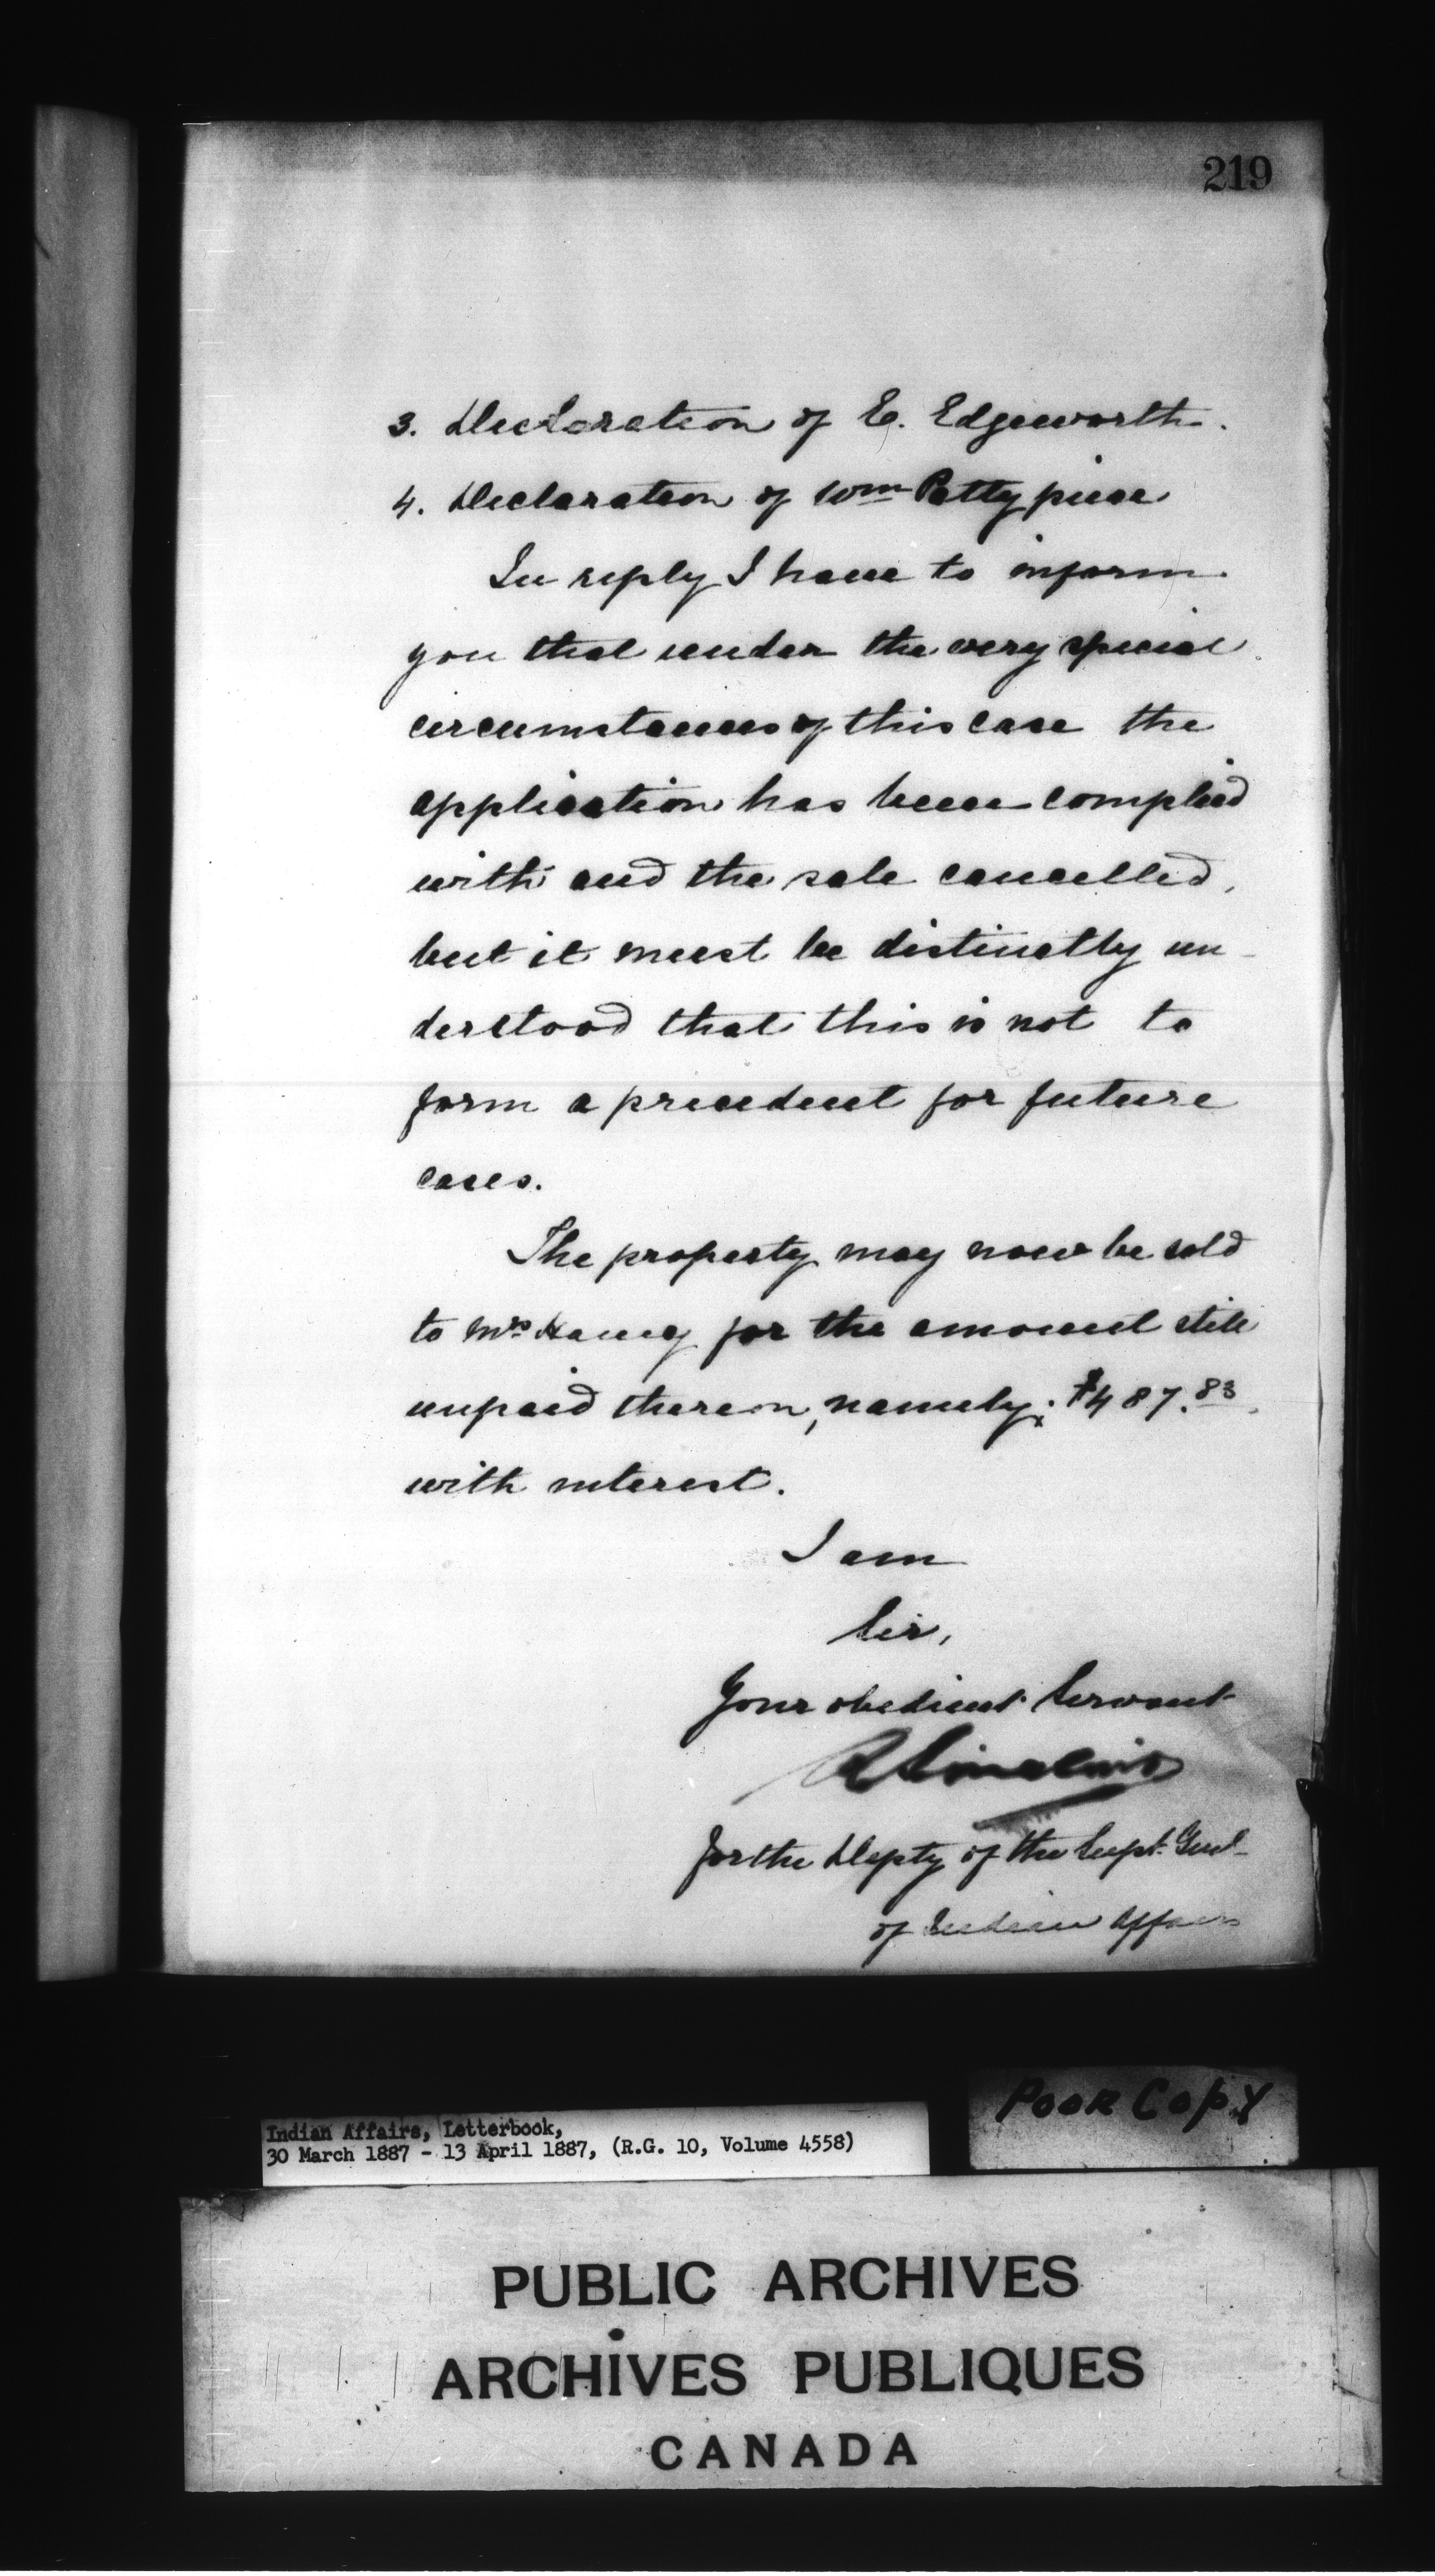 219
3. Declaration of E. Edgeworth.
4. Declaration of Wm Pettypiece
In reply I have to inform
you that under the very special
circumstances of this case the
application has been complied
with and the sale cancelled,
but it must be distinctly un-
derstood that this is not to
form a precedent for future
cases.
The property may now be sold
to Mrs. for the amount still
unpaid thereon, namely: $487.83
with interest.
I am
Sir,
Your obedient Servant
R Sinclair
for the Depty of the Supt. Genl
of Indian Affairs
POOR COPY
Indian Affairs, Letterbook,
30 March 1887 - 13 April 1887, (R.G. 10, Volume 4558)
PUBLIC ARCHIVES
ARCHIVES PUBLIQUES
CANADA